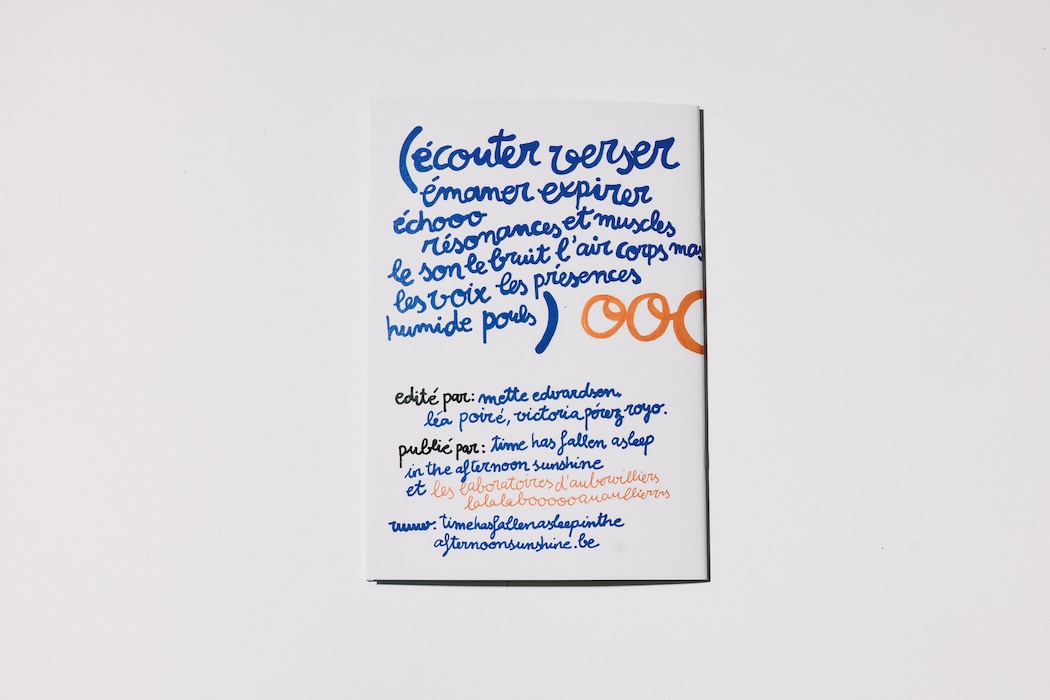 (écouter verser
émaner expirer
échooo
résonances et muscles
le son le bruit l'air corps mas
les voix les présences
humide pouls) ooo
edité par: mette edvardsen,
léa poiré, victoria pérez royo.
publié par: time has fallen asleep
in the afternoon sunshine
et les laboratoires d'aubervilliers
lalalabooooo
www. timehasfallenasleepinthe
afternoonsunshine.be